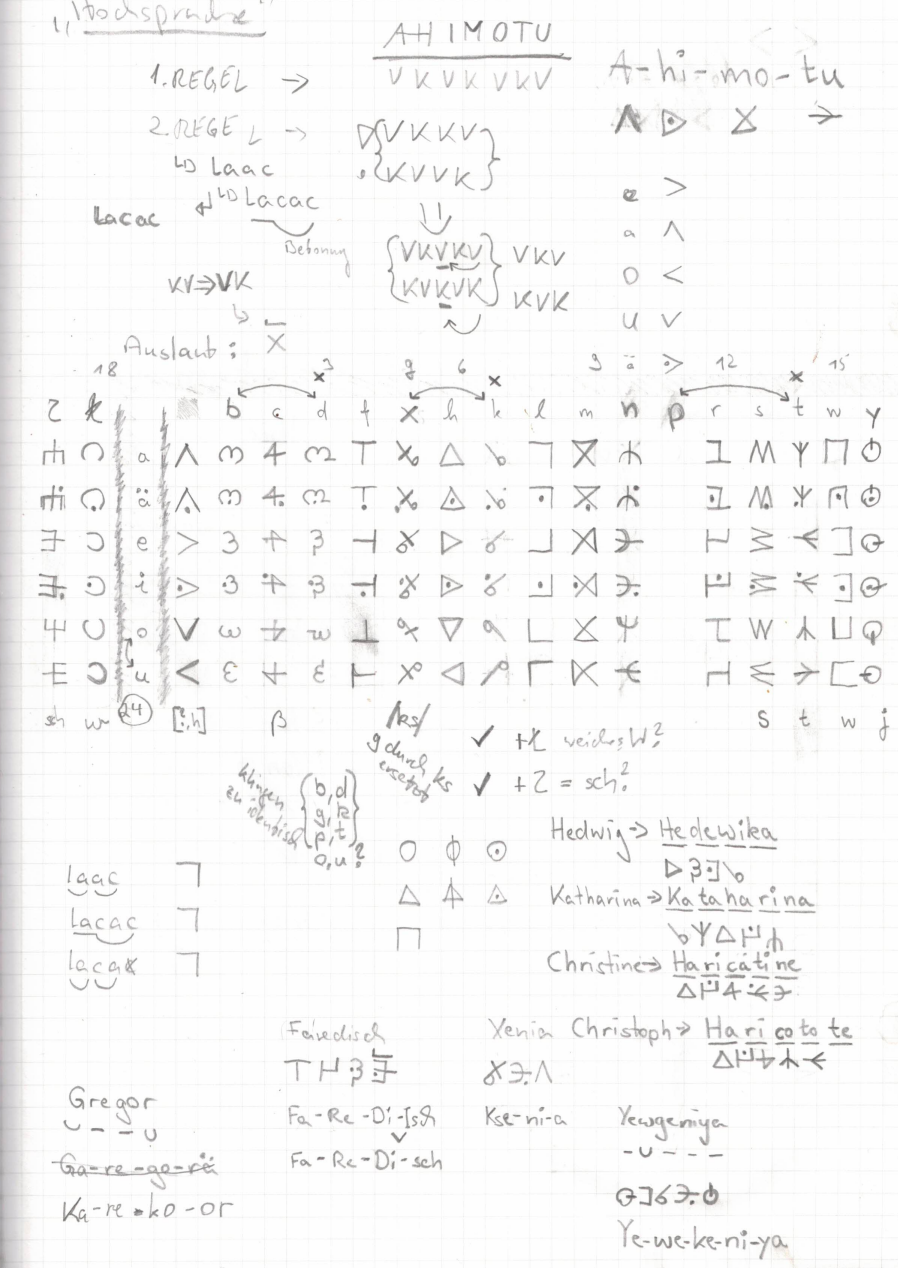 „Hochsprache"
AHIMOTU
1. REGEL → VKVK VKV
A-hi-mo-tu
2. REGEL → VKKV
KVVK
Laac
Lacac
Lacac
Betonung
VKVKV VKV
KVKVK KVK
KV⇒VK
Auslaut: X
e >
a Λ
o <
u V
ä
18 3 9 6 9 12 15
b c d f x h k l m n p r s t w y
a
ä
e
i
o
u
sch w 24 [:,h] β /ks/ S t w j
g durch ks ersetzt
✓ + weiches W?
✓ + = sch?
klingen zu identisch
b,d
g,k
p,t
o,u?
laac
lacac
Hedwig → Hedewika
Katharina → Kataharina
Christine → Haricatine
Christoph → Haricotote
Xenia
Kse-ni-a
Fa-Re-Di-Isch
Fa-Re-Di-sch
Gregor
Ga-re-go-re
Ka-re-ko-or
Yewgeniya
Ye-we-ke-ni-ya